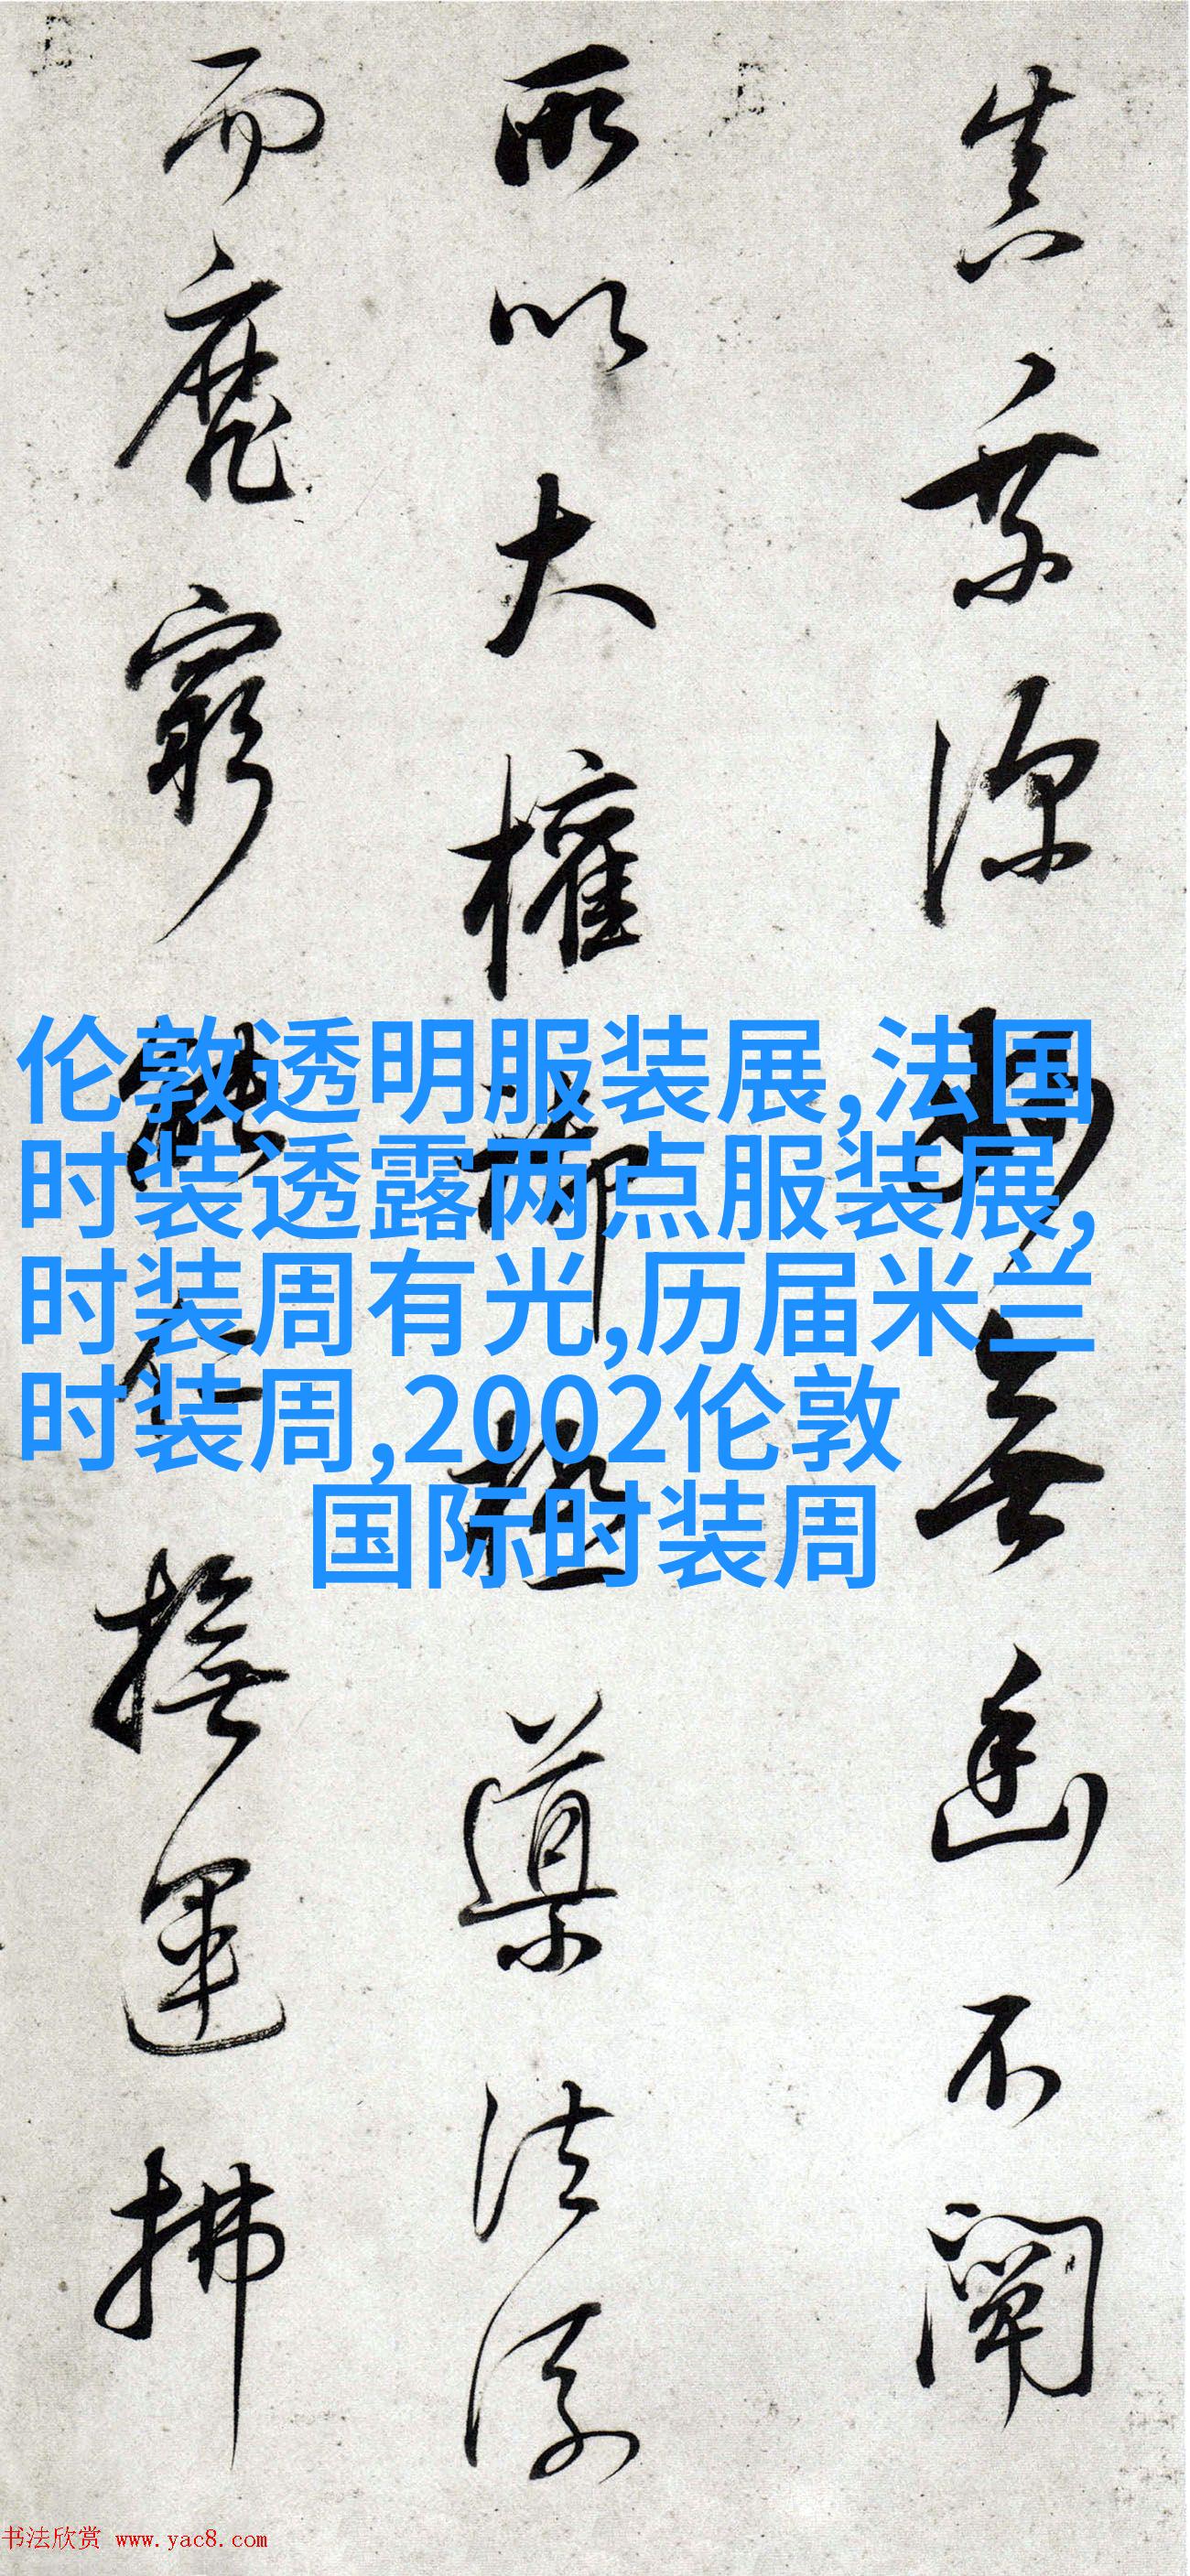 真乘深妙無幽不闡
所以大權御極導法流
而靡窮能仁撫運拂
伦敦透明服装展,法国
时装透露两点服装展,
时装周有光,历届米兰
时装周,2002伦敦
国际时装周
书法欣赏 www.yac8.com